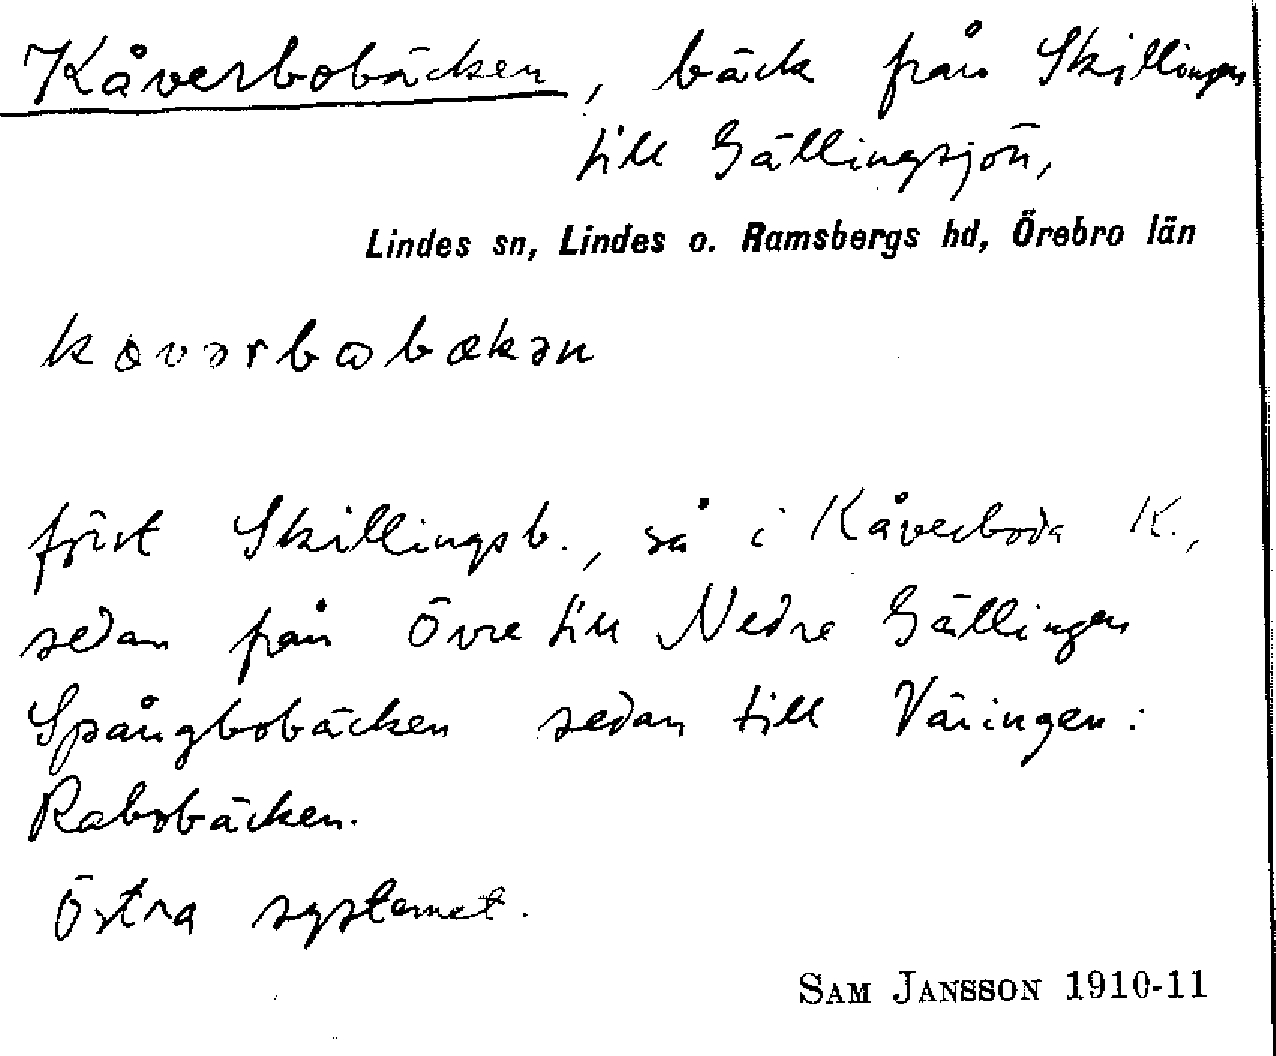 Kåverbobäcken, bäck från Skillingen
till Gällingsjön,
Lindes sn, Lindes o. Ramsbergs hd, Örebro län
kåvərbωbækən
först Skillingsb., så i Kåverboda K.,
sedan från Övre till Nedre Gällingen
Spångbobäcken sedan till Väringen:
Rabobäcken.
Östra systemet.
SAM JANSSON 1910-11